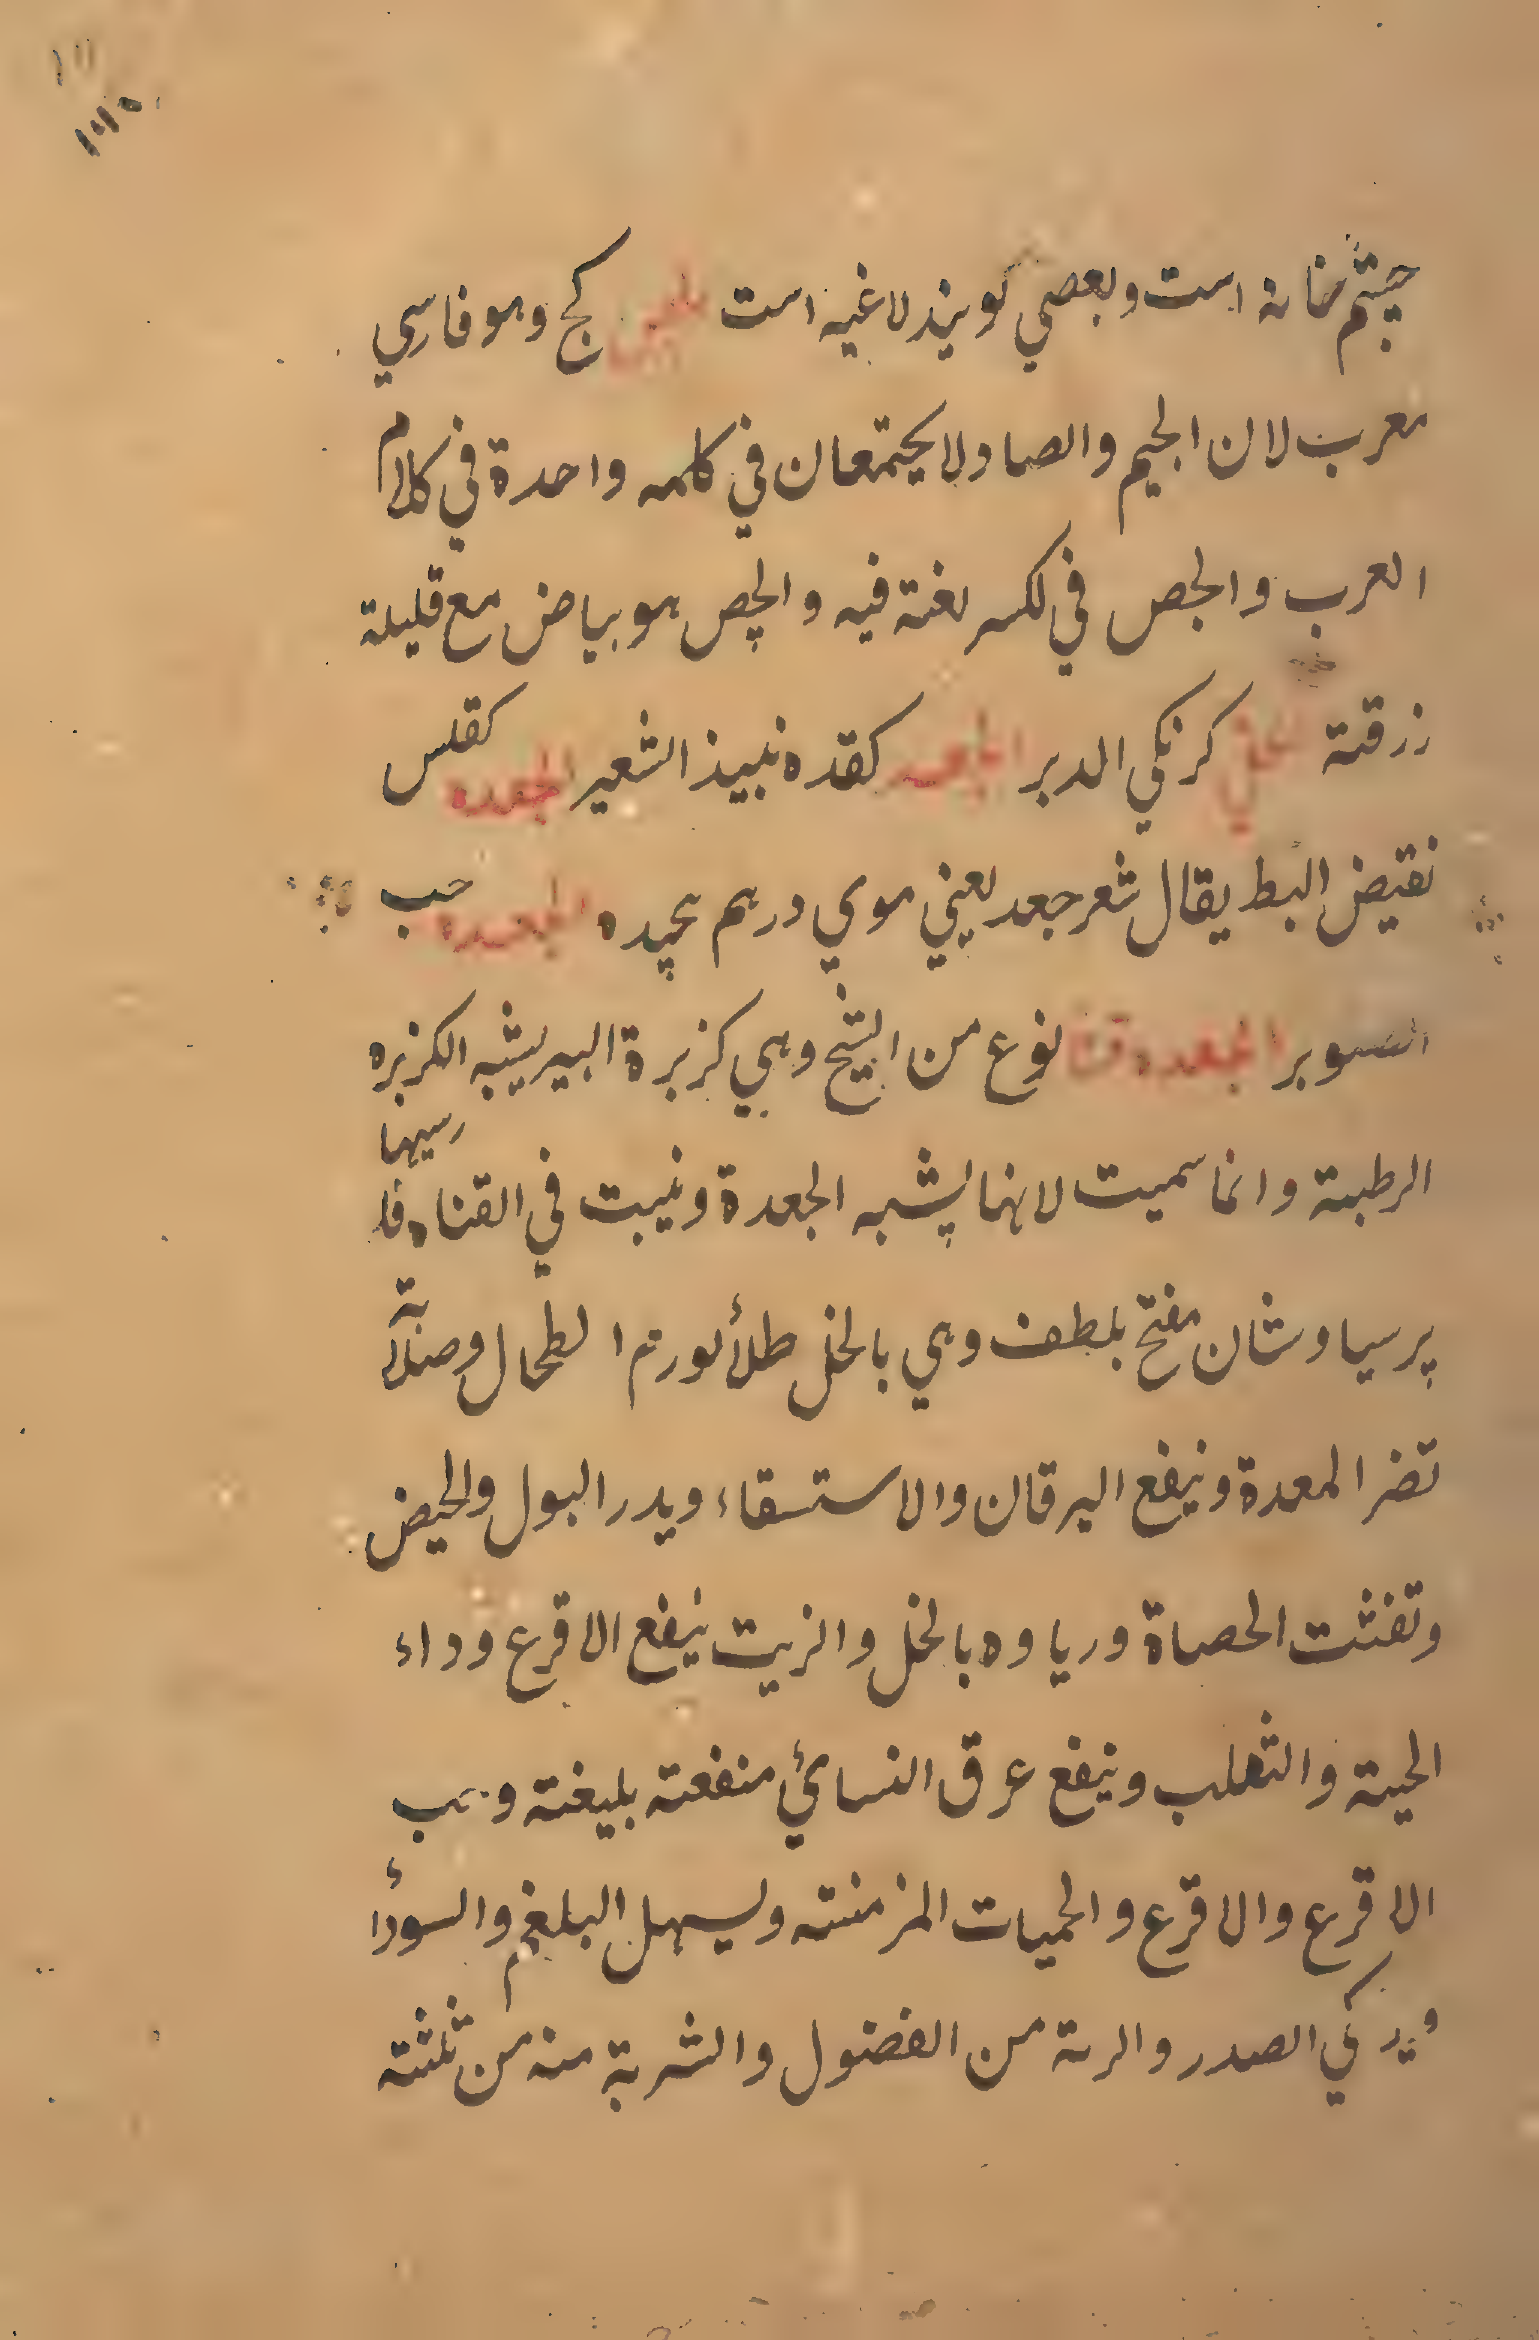 چشم خانه است وبعضي كويند لاغيه است كج وهو فارسي
معرب لان الجيم والصاد لا يجتمعان في كلمه واحدة في كلام
العرب والجص في لكسر لغته فيه والجص هو بياض مع قليلة
زرقته كرنكي الدبر الجعه كقده نبيذ الشعير الجعده كقلس
نقيض البط يقال شعر جعد يعني موي درهم پچيده الجعده حب
الصنوبر الجعده قنا نوع من الشيح وهي كزبرة البير يشبه الكزبره
الرطبة وانما سميت لانها يشبه الجعدة وينبت في القناه فارسيها
پرسياوشان مفتح بلطف وهي بالخل طلأ لورم الطحال وصلابة
تضر المعدة وينفع اليرقان والاستسقاء ويدر البول والحيض
وتفتت الحصاة ورياوه بالخل والزيت ينفع الاقرع وداء
الحية والثعلب وينفع عرق النسائ منفعته بليغته و
الاقرع والاقرع والحميات المزمنته ويسهل البلغم والسودأ
ويزكي الصدر والرية من الفضول والشربة منه من ثلثته